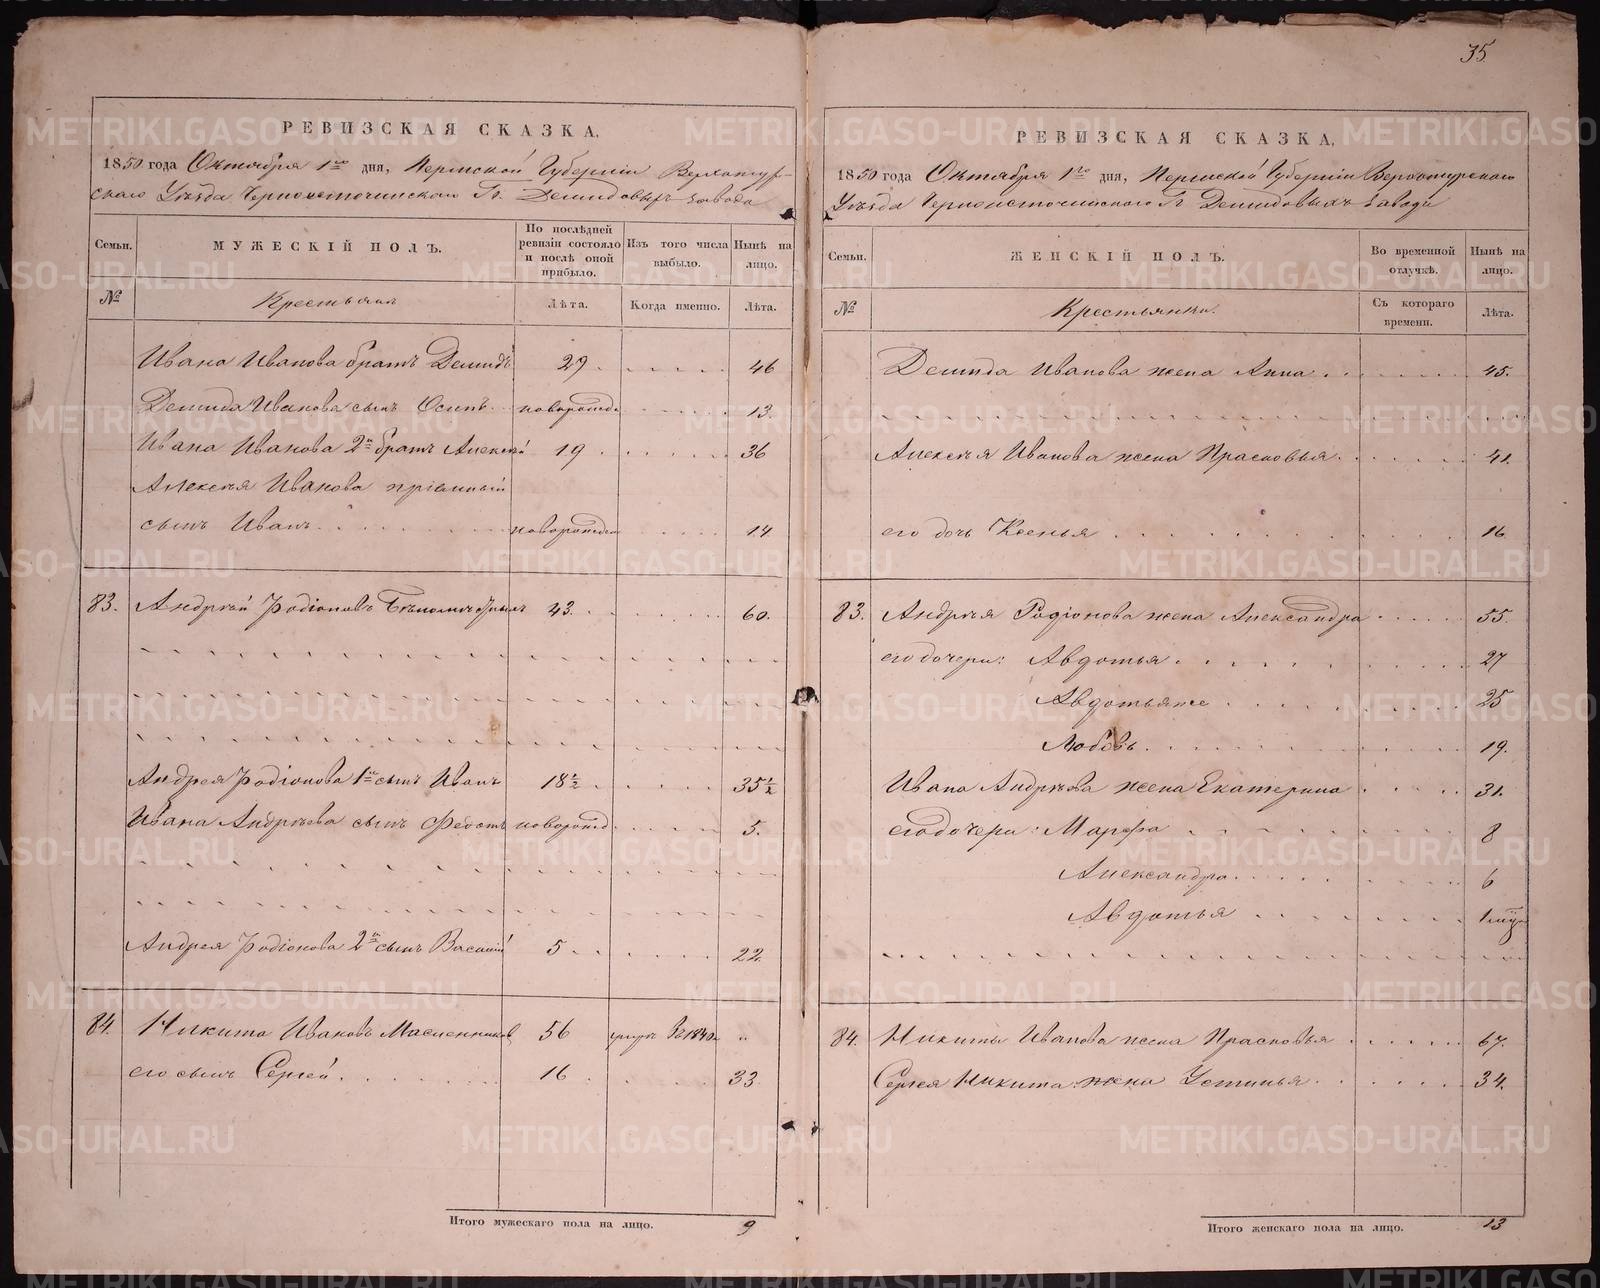 35
РЕВИЗСКАЯ СКАЗКА.
1850 года Октября 1го дня, Пермской Губерніи Верхотур-
скаго Уѣзда Черноисточинскаго Гг. Демидовыхъ завода
Семьи.
МУЖЕСКІЙ ПОЛЪ.
По последней ревизіи состояло и послѣ оной прибыло.
Изъ того числа выбыло.
Нынѣ на лицо.
№
Крестьяне
Лѣта.
Когда именно.
Лѣта.
Ивана Иванова братъ Демидъ 29 46
Демида Иванова сынъ Осипъ новорожд 13.
Ивана Иванова 2й братъ Алексѣй 19 36
Алексѣя Иванова пріемный
сынъ Иванъ новорожден 14
83. Андрѣй Родіоновъ 43. 60.
Андрея Родіонова 1й сынъ Иванъ 18½ 35½
Ивана Андрѣева сынъ Федотъ новорожд 5.
Андрея Родіонова 2й сынъ Василій 5 22.
84. Никита Ивановъ Масленниковъ 56 умеръ въ 1840м „
его сынъ Сергей 16 33.
Итого мужескаго пола на лицо. 9
РЕВИЗСКАЯ СКАЗКА.
1850 года Октября 1го дня, Пермской Губерніи Верхотурскаго
Уѣзда Черноисточинскаго Гг Демидовыхъ завода
Семьи.
ЖЕНСКІЙ ПОЛЪ.
Во временной отлучкѣ.
Нынѣ на лицо.
№
Крестьянки.
Съ котораго времени.
Лѣта.
Демида Иванова жена Анна 45.
Алексѣя Иванова жена Прасковья 41.
его дочь Ксенья 16
83. Андрѣя Родіонова жена Александра 55.
его дочери: Авдотья 27
Авдотья же 25
Любовь 19.
Ивана Андрѣева жена Екатерина 31.
его дочери: Марфа 8
Александра 6
Авдотья 1
84. Никиты Иванова жена Прасковья 67.
Сергея Никитина жена Устинья 34.
Итого женскаго пола на лицо. 13
METRIKI.GASO-URAL.RU